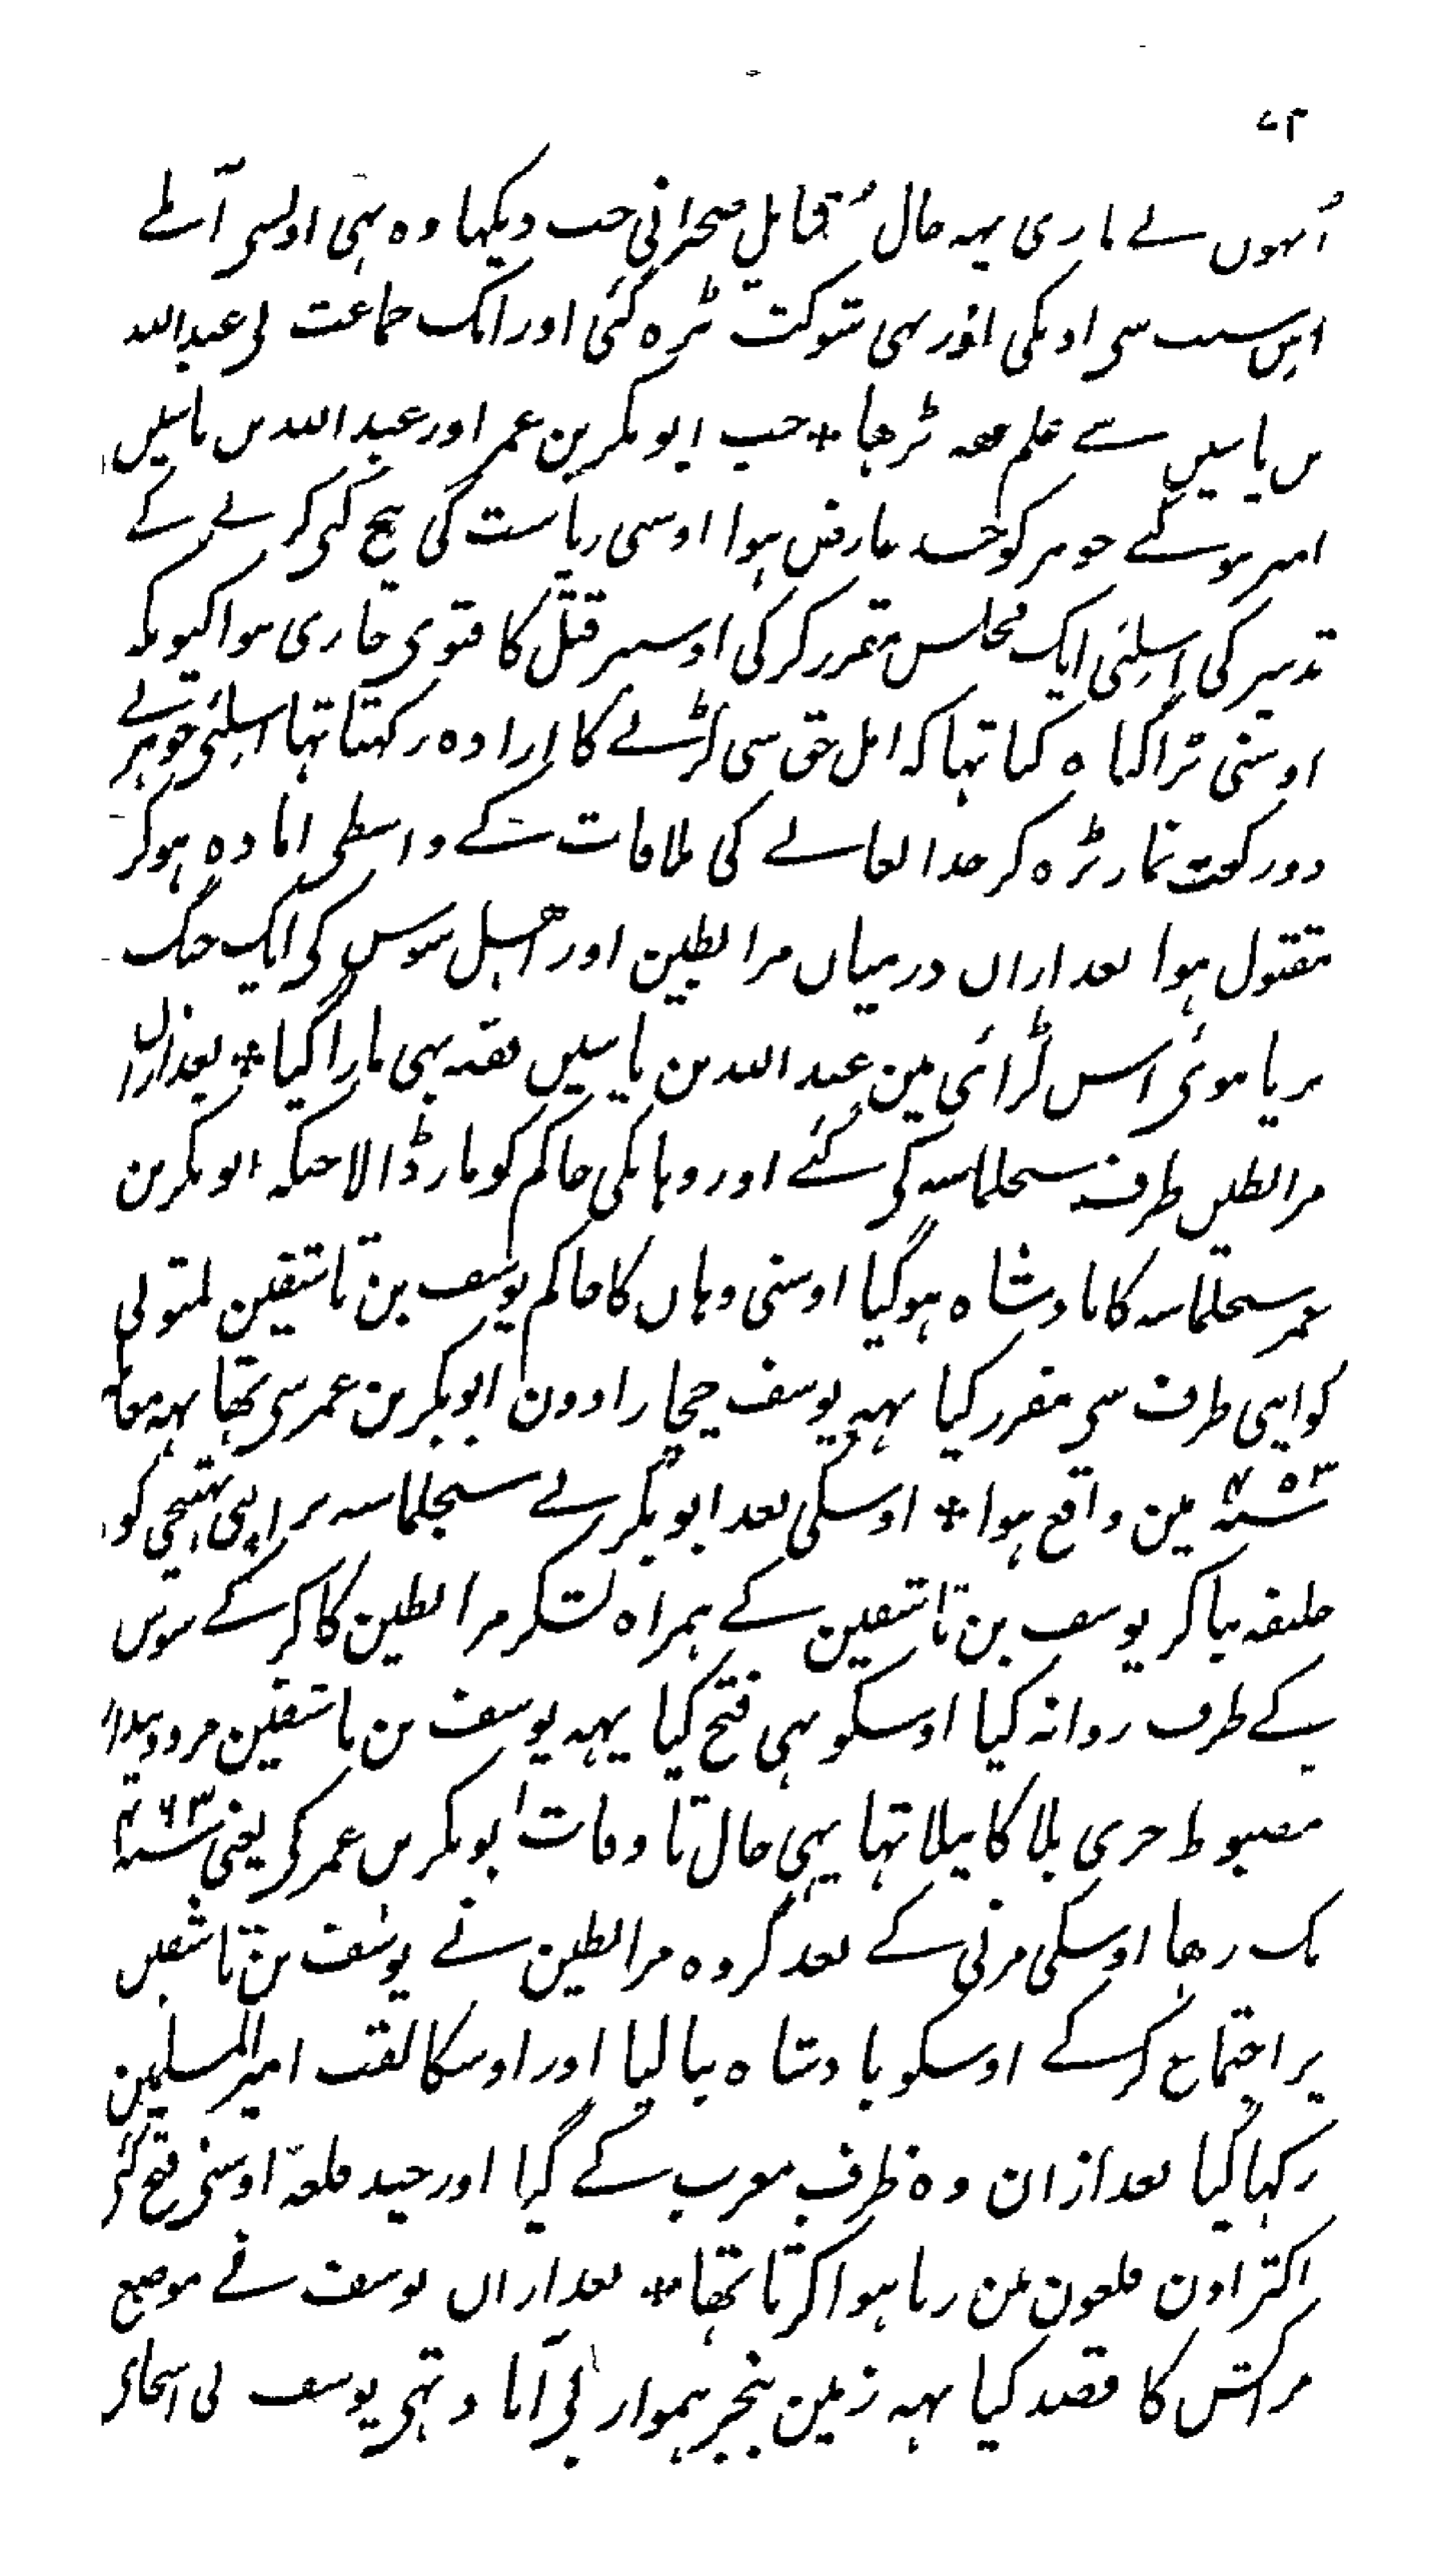 ۷۲
اُنہوں نے ماری یہہ حال قبایل صحرانی جب دیکھا وہ بہی اوسی آملے
اس سبب سی اونکی اور بہی شوکت بڑہ گئی اور ایک جماعت نی عبداللہ
بن یاسین سے علم فقہ پڑہا * جب ابو بکر بن عمر اور عبد اللہ بن یاسین
امیر ہوگئے جوہر کو حسد عارض ہوا اوسی ریاست کی بیخ کنی کرنے کے
تدبیر کی اسلئی ایک مجلس مقرر کر کی اوسپر قتل کا فتوی جاری ہوا کیونکہ
اوسنی بڑا گناہ کیا تہا کہ اہل حق سی لڑنے کا ارادہ رکہتا تہا اسلئی جوہر نے
دو رکعت نماز پڑہ کر خدا تعالے کی ملاقات کے واسطی امادہ ہوکر
مقتول ہوا بعد ازاں درمیاں مرابطین اور اہل سوس کی ایک جنگ
برپا ہوئی اس لڑائی مین عبد اللہ بن یاسین فقہ بہی مارا گیا * بعد ازاں
مرابطین طرف سجلماسہ کی گئے اور وہانکی حاکم کو مار ڈالا جبکہ ابو بکر بن
عمر سجلماسہ کا بادشاہ ہوگیا اوسنی وہاں کا حاکم یوسف بن تاشفین لمتونی
کو اپنی طرف سی مقرر کیا یہہ یوسف چچا زادون ابوبکر بن عمر سی تھا یہہ معاملہ
سنہ ۴۵۳ مین واقع ہوا * اوسکی بعد ابو بکر نے سجلماسہ پر اپنی بہتیجی کو
خلیفہ بناکر یوسف بن تاشفین کے ہمراہ لشکر مرابطین کا کر کے سوس
کے طرف روانہ کیا اوسکو بہی فتح کیا یہہ یوسف بن تاشفین مرد دیندار
مضبوط جری بلا کا پیلا تہا یہی حال تا وفات ابو بکر بن عمر کی یعنی سنہ ۴۶۳
تک رہا اوسکی مرنی کے بعد گروہ مرابطین نے یوسف بن تاشفین
پر اجتماع کرکے اوسکو بادشاہ بنا لیا اور اوسکا لقب امیر المسلمین
رکہا گیا بعد ازان وہ طرف مغرب کے گیا اور چند قلعہ اوسنی فتح کئی
اکثر اون قلعون مین رہا ہوا کرتا تھا * بعد ازاں یوسف نے موضع
مراکش کا قصد کیا یہہ زمین بنجر ہموار بی آباد تہی یوسف نی اسجائی